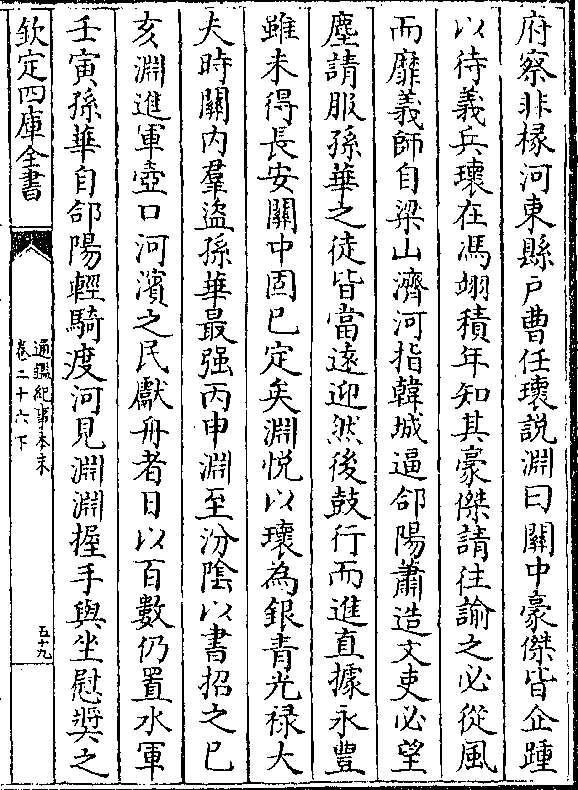 府察非掾河東縣戶曹任瓌說淵曰關中豪傑皆企踵
以待義兵瓌在馮翊積年知其豪傑請往諭之必從風
而靡義師自梁山濟河指韓城逼郃陽蕭造文吏必望
塵請服孫華之徒皆當遠迎然後鼓行而進直據永豐
雖未得長安關中固已定矣淵悅以瓌為銀青光祿大
夫時關內羣盜孫華最强丙申淵至汾陰以書招之已
亥淵進軍壺口河濱之民獻舟者日以百數仍置水軍
壬寅孫華自郃陽輕騎度河見淵淵握手與坐慰奬之
欽定四庫全書
通鑑紀事本末
卷二十六下
五十九